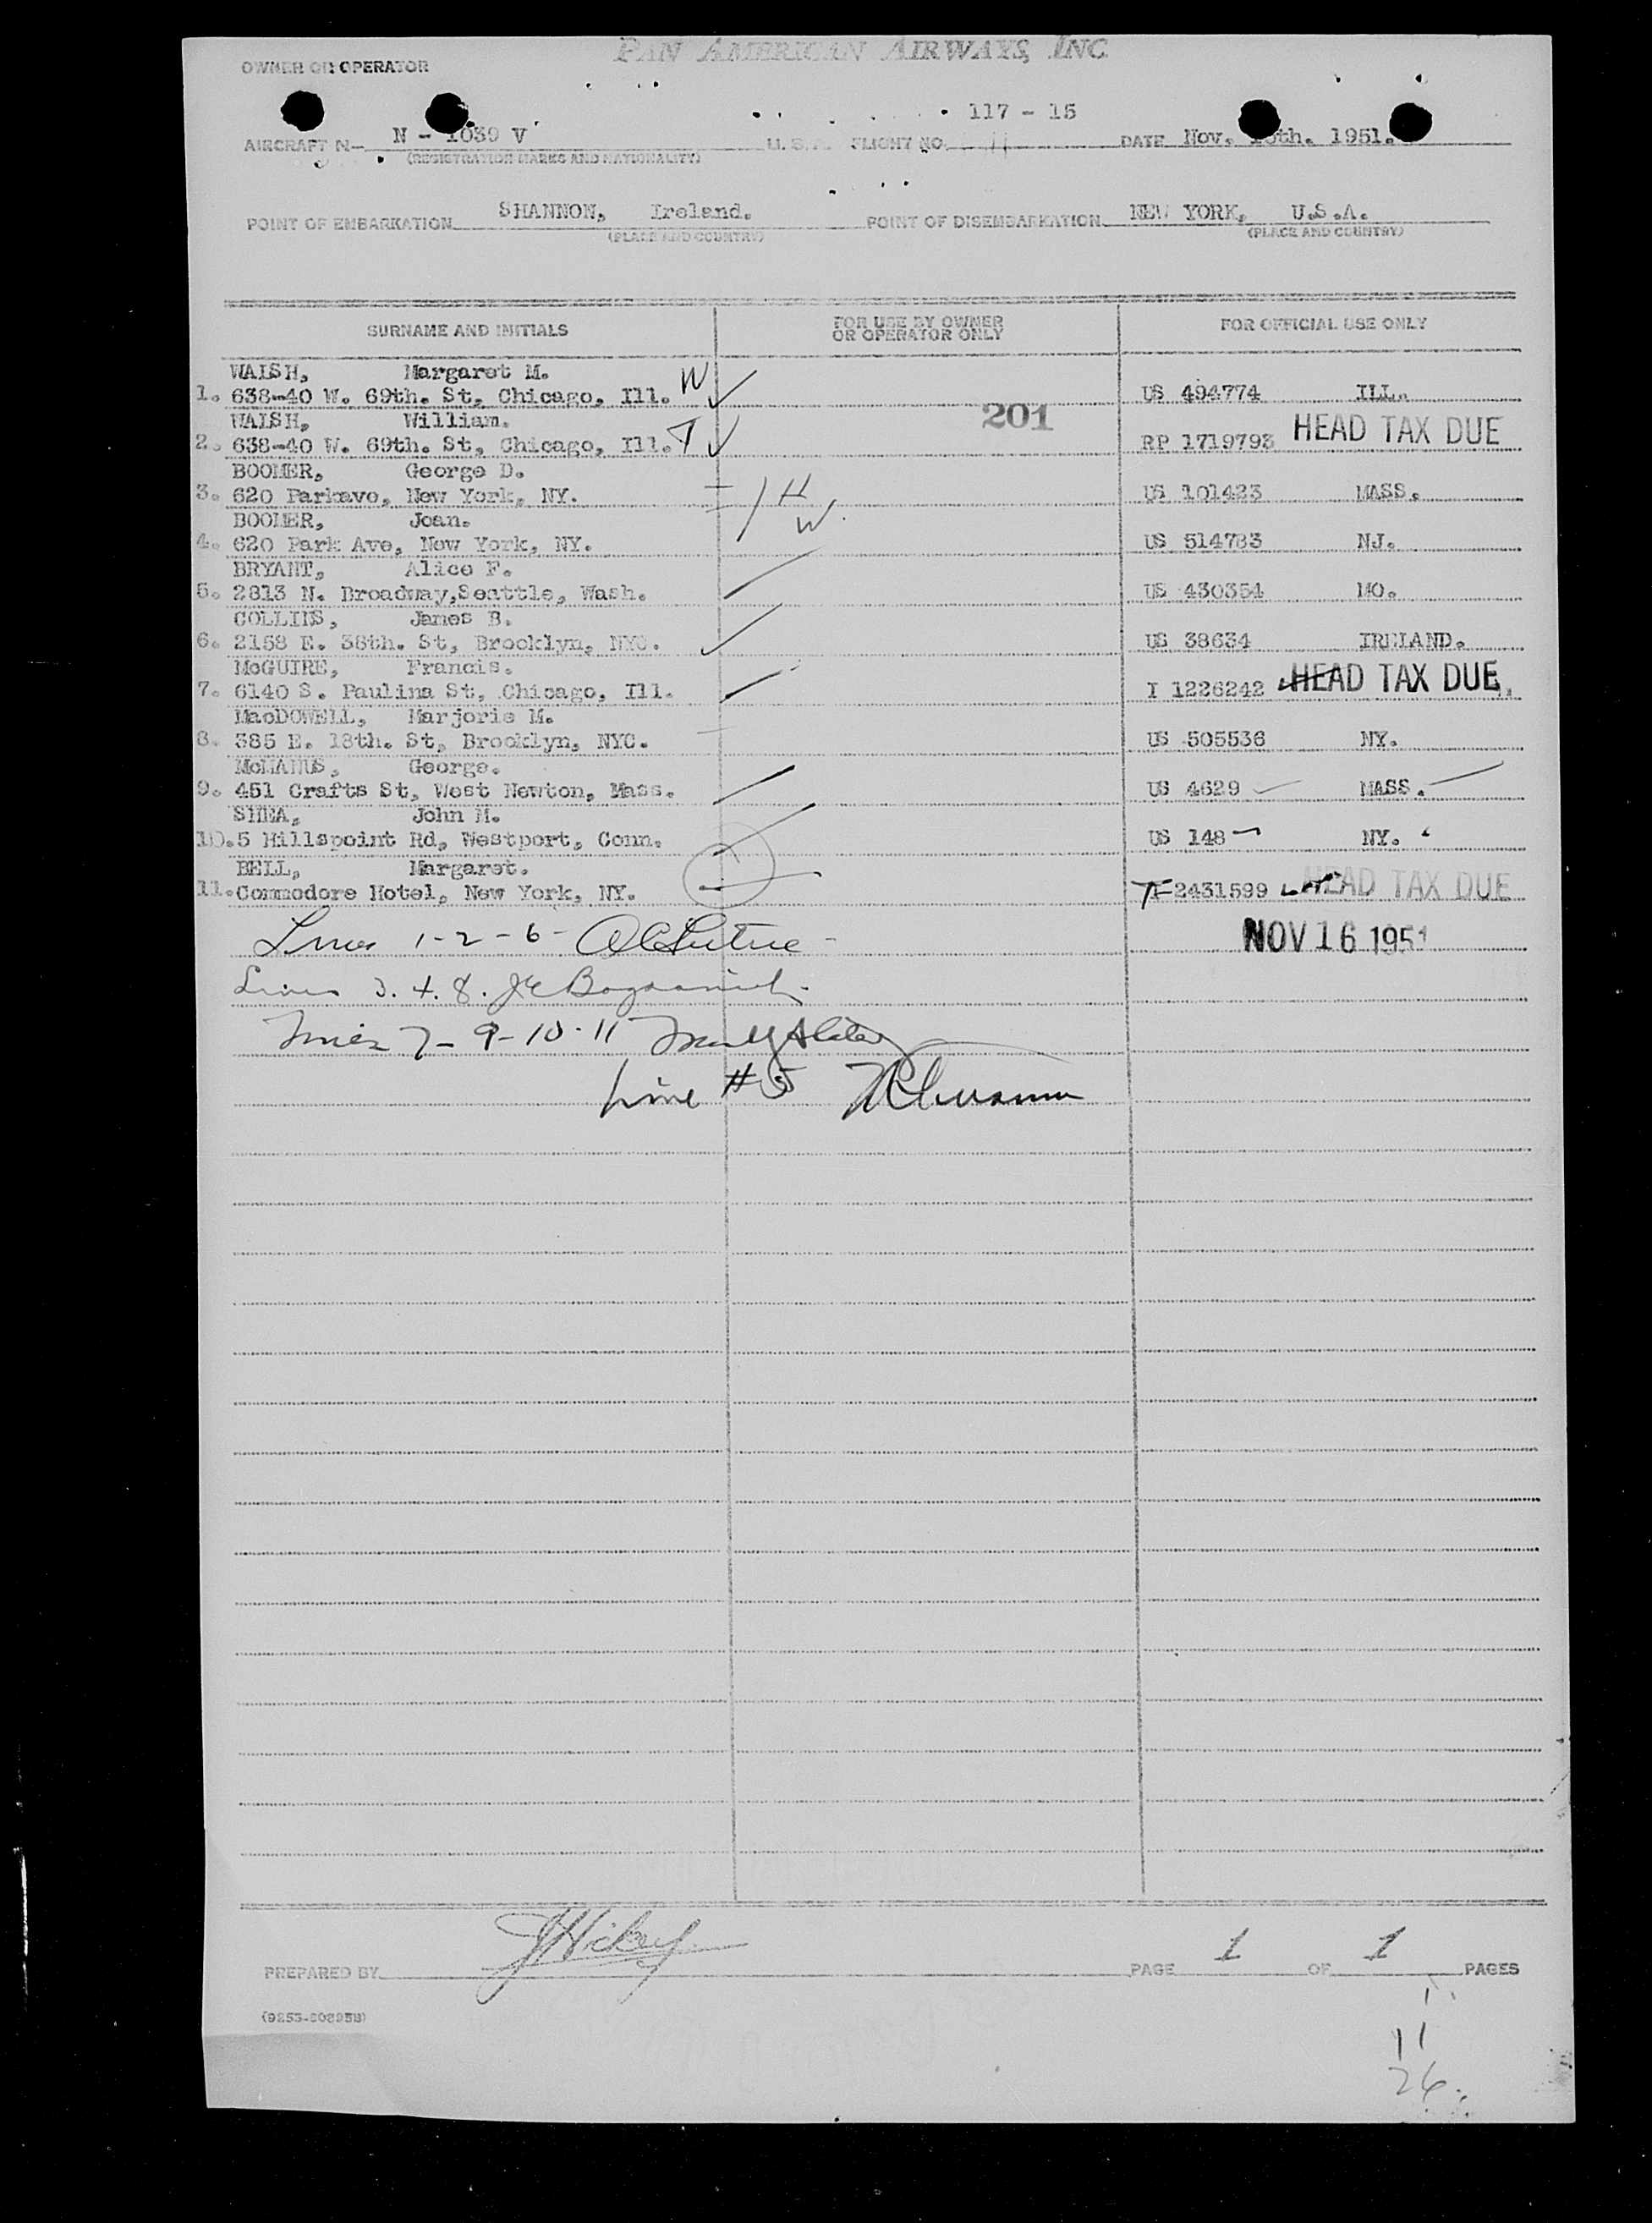 PAN AMERICAN AIRWAYS, INC
OWNER OR OPERATOR
117 - 15
AIRCRAFT N- N - 1039 V U.S.A. FLIGHT NO. DATE Nov. th. 1951.
(REGISTRATION MARKS AND NATIONALITY)
POINT OF EMBARKATION SHANNON, Ireland. POINT OF DISEMBARKATION NEW YORK, U.S.A.
(PLACE AND COUNTRY) (PLACE AND COUNTRY)
SURNAME AND INITIALS FOR USE BY OWNER OR OPERATOR ONLY FOR OFFICIAL USE ONLY
WALSH, Margaret M. W
1. 638-40 W. 69th. St, Chicago, Ill. US 494774 ILL.
WALSH, William. 201
2. 638-40 W. 69th. St, Chicago, Ill. T RP 1719793 HEAD TAX DUE
BOOMER, George D.
3. 620 Parkave, New York, NY. H US 101423 MASS.
BOOMER, Joan. W.
4. 620 Park Ave, New York, NY. US 514783 NJ.
BRYANT, Alice F.
5. 2813 N. Broadway,Seattle, Wash. US 430354 MO.
COLLINS, James B.
6. 2158 E. 38th. St, Brooklyn, NYC. US 38634 IRELAND.
McGUIRE, Francis.
7. 6140 S. Paulina St, Chicago, Ill. I 1226242 HEAD TAX DUE
MacDOWELL, Marjorie M.
8. 385 E. 18th. St, Brooklyn, NYC. US 505536 NY.
McMANUS, George.
9. 451 Crafts St, West Newton, Mass. US 4629 MASS.
SHEA, John M.
10. 5 Hillspoint Rd, Westport, Conn. US 148 NY.
BELL, Margaret.
11. Commodore Hotel, New York, NY. 2431599 HEAD TAX DUE
Lines 1-2-6- NOV 16 1951
Lines 3. 4. 8.
Lines 7-9-10-11
Line #5
PREPARED BY JHickey PAGE 1 OF 1 PAGES
11
26.